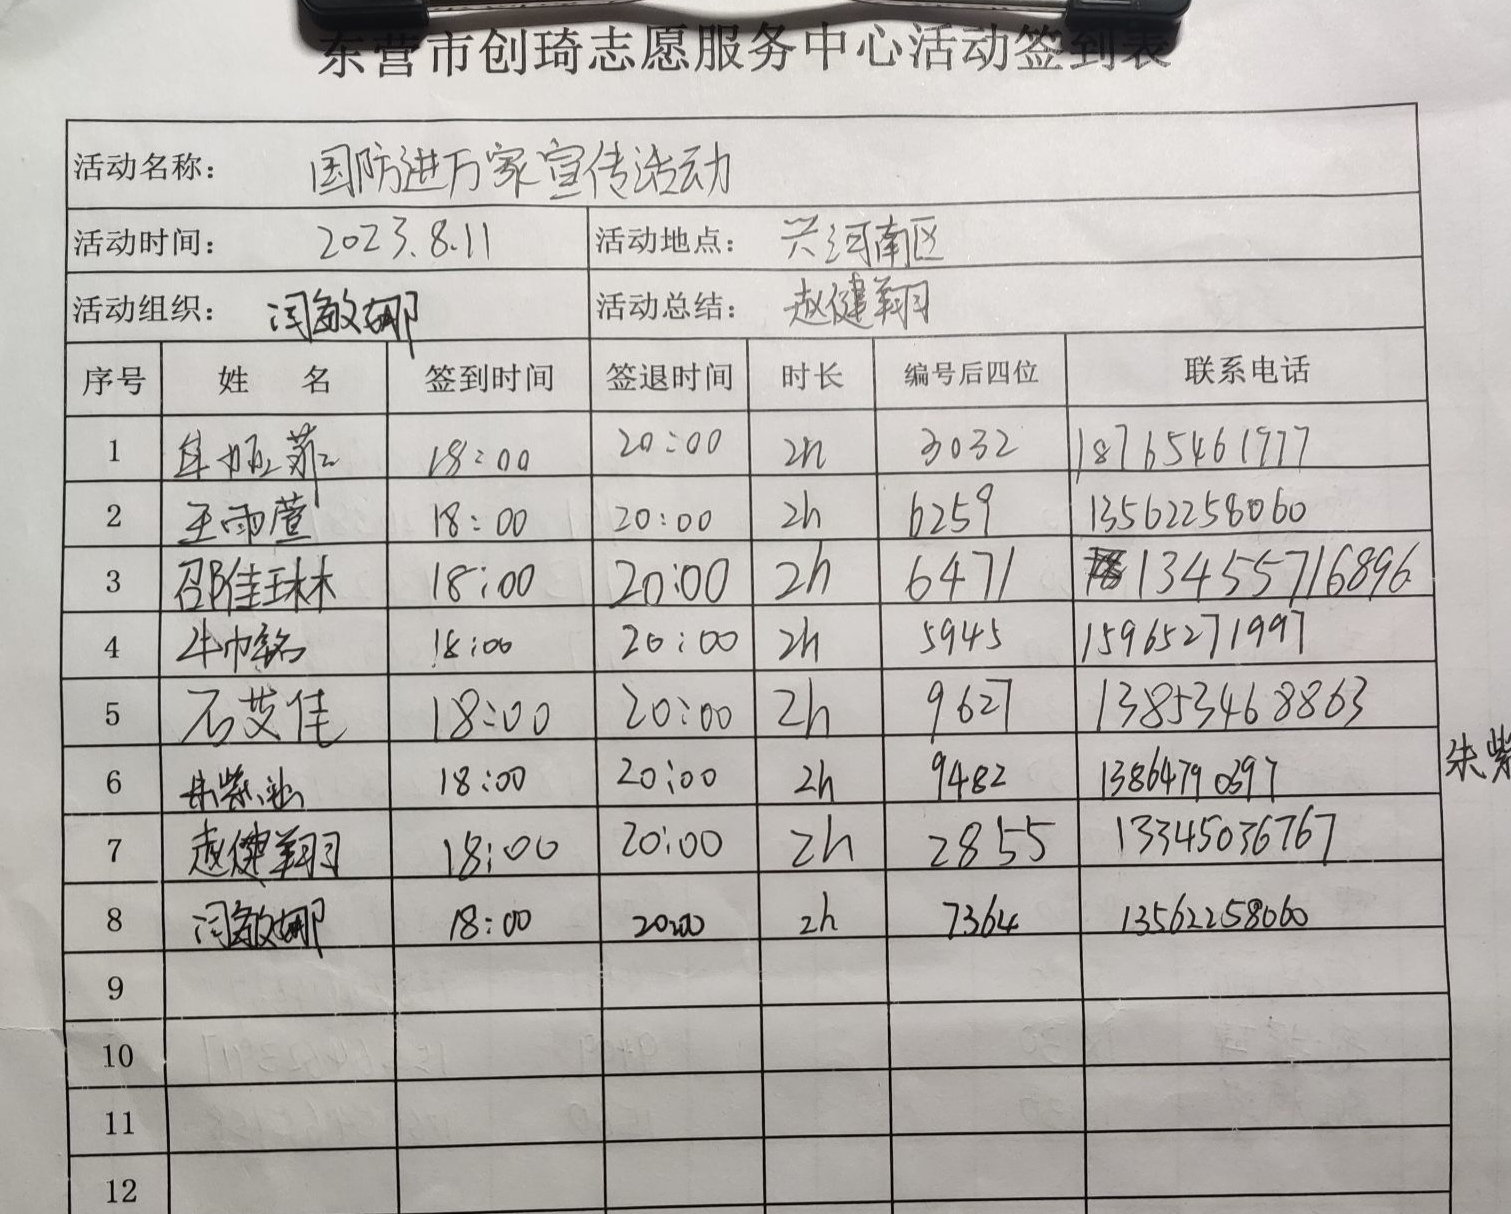 东营市创琦志愿服务中心活动签到表
活动名称： 国防进万家宣传活动
活动时间： 2023.8.11 活动地点： 兴河南区
活动组织： 闫敏娜 活动总结： 赵健翔
序号 姓 名 签到时间 签退时间 时长 编号后四位 联系电话
1 18:00 20:00 2h 3032 18765461777
2 王雨萱 18:00 20:00 2h 6259 13562258060
3 邵佳琳 18:00 20:00 2h 6471 13455716896
4 牛巾铭 18:00 20:00 2h 5945 15965271997
5 石艾佳 18:00 20:00 2h 9627 13853468863
朱紫
6 朱紫 18:00 20:00 2h 9482 13864790397
7 赵健翔 18:00 20:00 2h 2855 13345036767
8 闫敏娜 18:00 20:00 2h 7364 13562258060
9
10
11
12